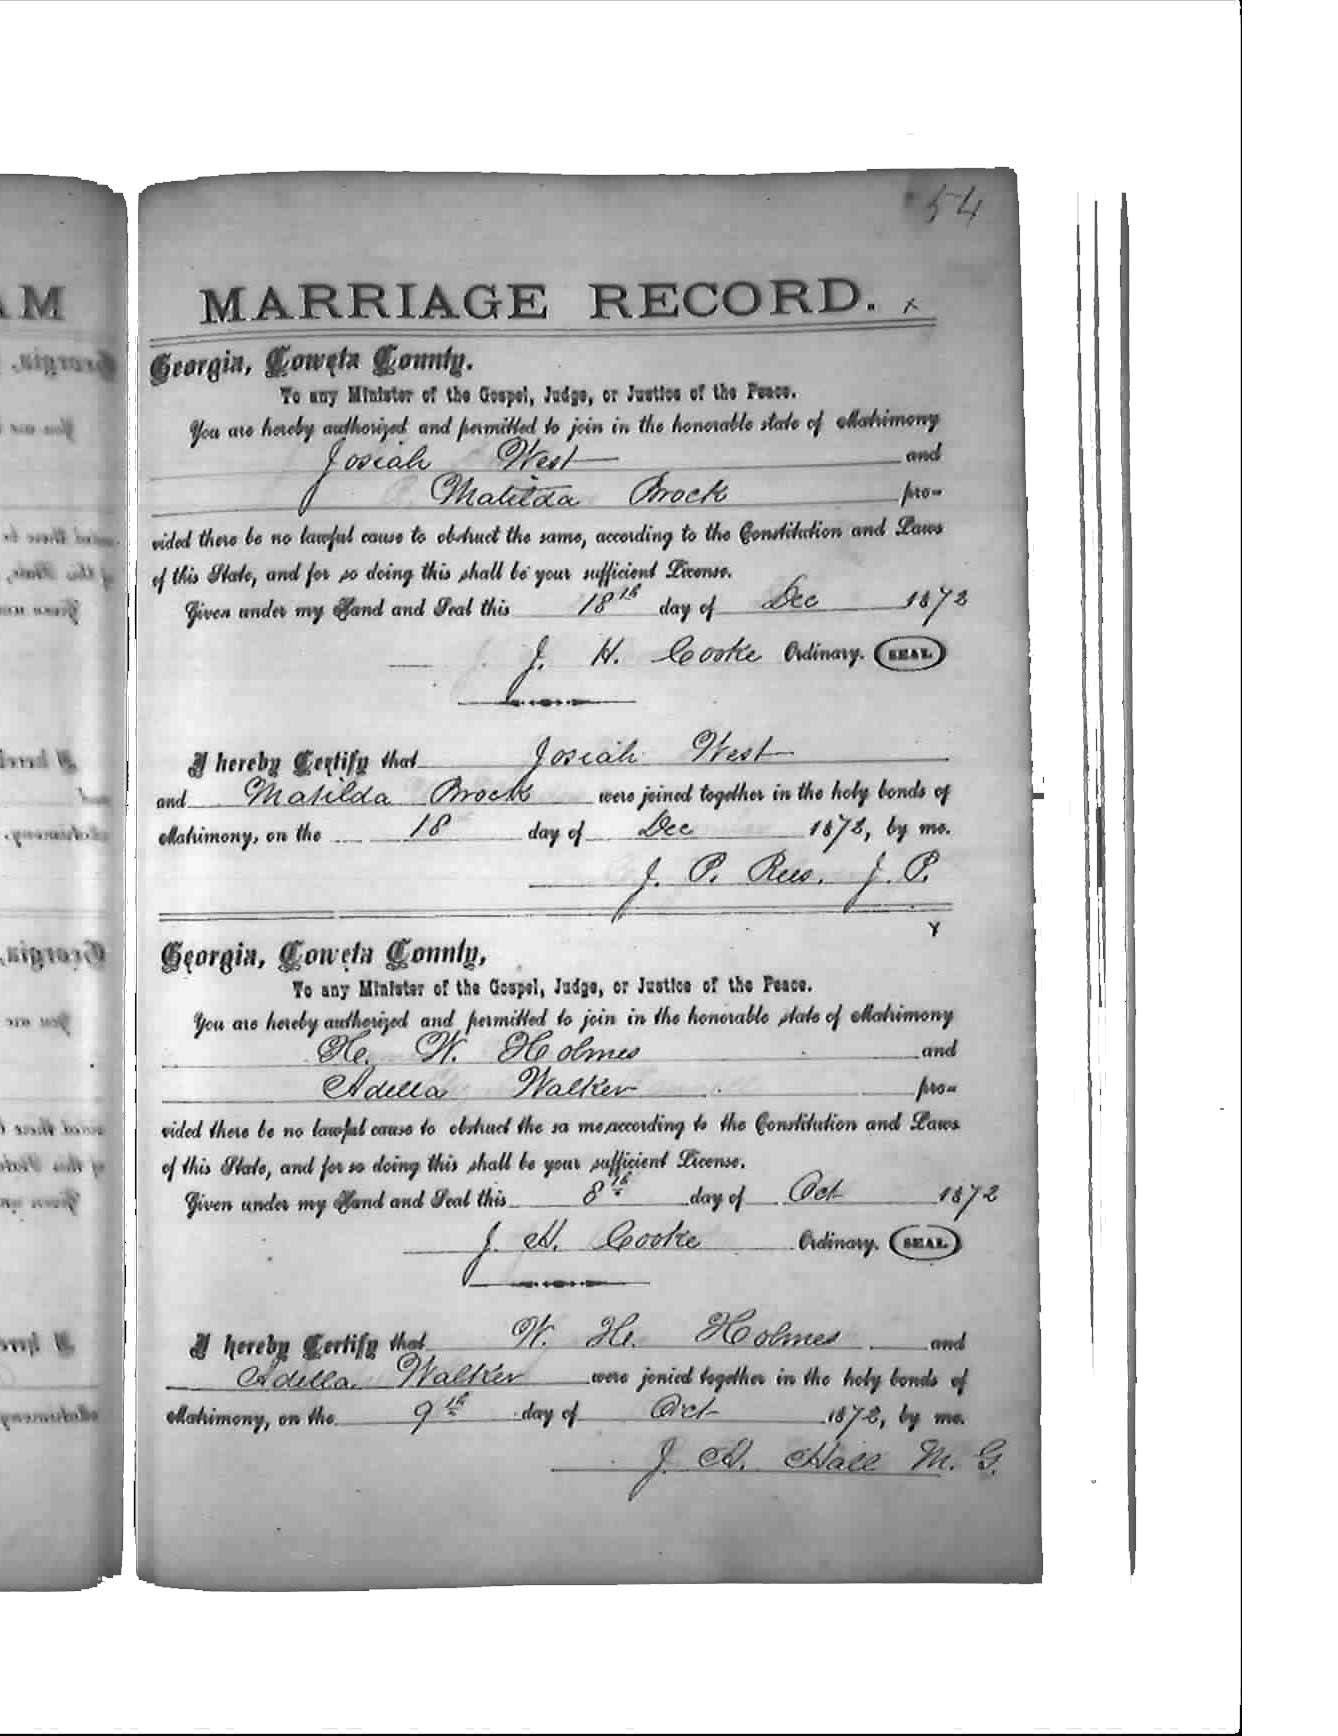 54
MARRIAGE RECORD. x
Georgia, Coweta County.
To any Minister of the Gospel, Judge, or Justice of the Peace.
You are hereby authorized and permitted to join in the honorable state of Matrimony
Josiah West and
Matilda Brock pro-
vided there be no lawful cause to obstruct the same, according to the Constitution and Laws
of this State, and for so doing this shall be your sufficient License.
Given under my Hand and Seal this 18th day of Dec 1872
J. H. Cooke Ordinary. SEAL
I hereby Certify that Josiah West
and Matilda Brock were joined together in the holy bonds of
Matrimony, on the 18 day of Dec 1872, by me.
J. P. Rees. J. P.
Georgia, Coweta County,
To any Minister of the Gospel, Judge, or Justice of the Peace.
You are hereby authorized and permitted to join in the honorable state of Matrimony
H. W. Holmes and
Adella Walker pro-
vided there be no lawful cause to obstruct the sa me,according to the Constitution and Laws
of this State, and for so doing this shall be your sufficient License.
Given under my Hand and Seal this 8th day of Oct 1872
J. H. Cooke Ordinary. SEAL
I hereby Certify that W. H. Holmes and
Adella Walker were jonied together in the holy bonds of
Matrimony, on the 9th day of Oct 1872, by me.
J. H. Hall M. G.